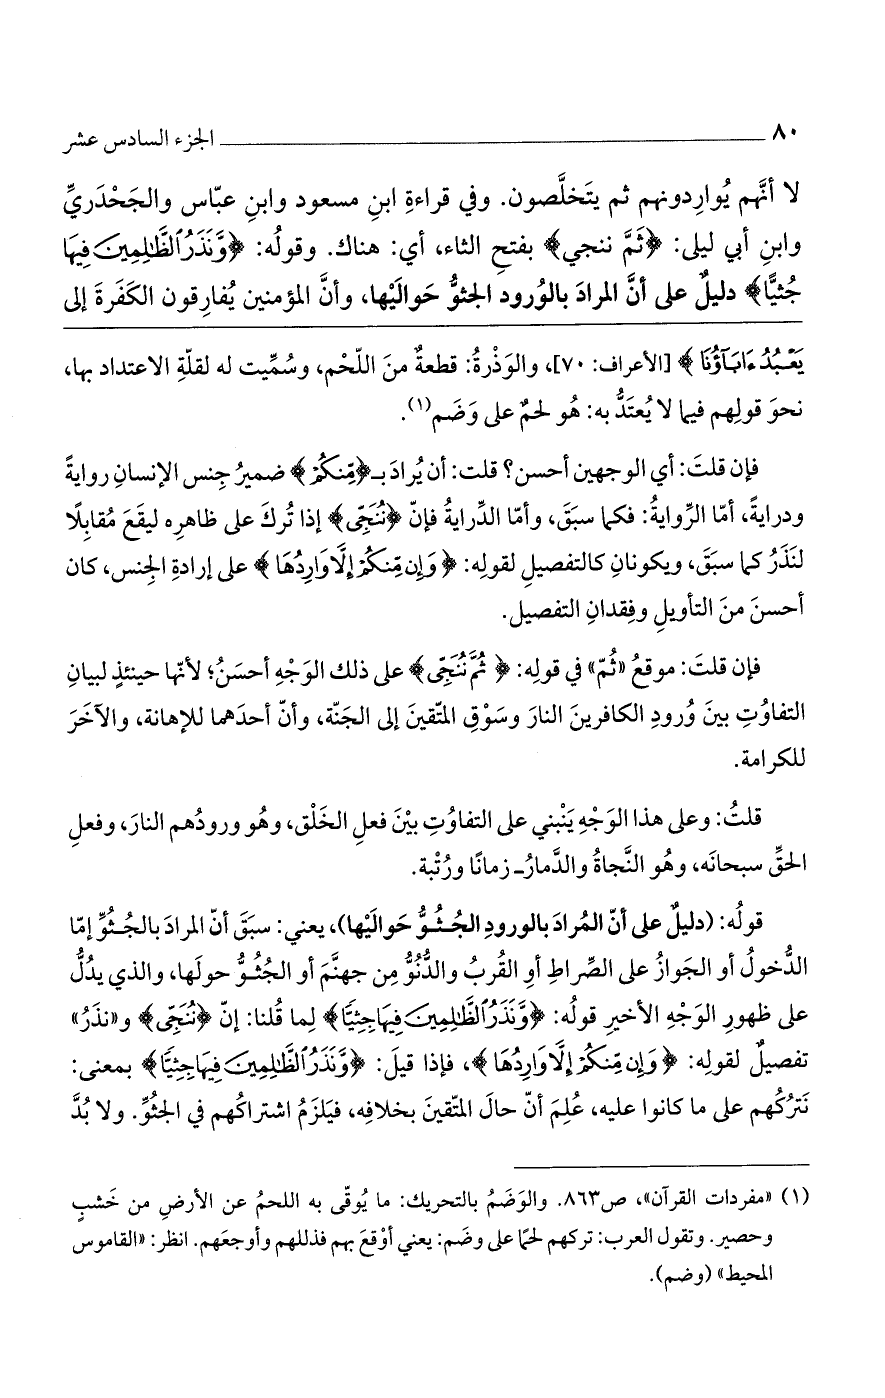 ٨٠ الجزء السادس عشر
لا أنَّهم يُوارِدونهم ثم يتَخلَّصون. وفي قراءةِ ابنِ مسعود وابنِ عبّاس والجَحْدَريِّ
وابنِ أبي ليلى: ﴿ثَمَّ ننجي﴾ بفتحِ الثاء، أي: هناك. وقولُه: ﴿وَّنَذَرُ ٱلظَّٰلِمِينَ فِيهَا
جِثِيًّا﴾ دليلٌ على أنَّ المرادَ بالوُرود الجثوُّ حَوالَيْها، وأنَّ المؤمنين يُفارِقون الكَفَرةَ إلى
يَعْبُدُ ءَابَآؤُنَا ﴾ [الأعراف: ٧٠]، والوَذْرةُ: قطعةٌ منَ اللّحْم، وسُمِّيت له لقلّةِ الاعتداد بها،
نحوَ قولِهم فيما لا يُعتَدُّ به: هُو لحمٌ على وَضَم(١).
فإن قلتَ: أي الوجهين أحسن؟ قلت: أن يُرادَ بـ﴿مِّنكُمْ﴾ ضميرُ جِنس الإنسانِ روايةً
ودرايةً، أمّا الرِّوايةُ: فكما سبَقَ، وأمّا الدِّرايةُ فإنّ ﴿نُنَجِّى﴾ إذا تُركَ على ظاهرِه ليقَعَ مُقابِلًا
لنَذَرُ كما سبَقَ، ويكونانِ كالتفصيلِ لقولِه: ﴿وَإِن مِّنكُمْ إِلَّا وَارِدُهَا ﴾ على إرادةِ الجِنس، كان
أحسنَ منَ التأويلِ وفِقدانِ التفصيل.
فإن قلتَ: موقعُ «ثُمّ» في قولِه: ﴿ ثُمَّ نُنَجِّى﴾ على ذلك الوَجْهِ أحسَنُ؛ لأنّها حينئذٍ لبيانِ
التفاوُتِ بينَ وُرودِ الكافرينَ النارَ وسَوْقِ المتّقينَ إلى الجَنّة، وأنّ أحدَهما للإهانة، والآخَرَ
للكرامة.
قلتُ: وعلى هذا الوَجْهِ يَنْبني على التفاوُتِ بيْنَ فعلِ الخَلْق، وهُو ورودُهم النارَ، وفعلِ
الحقِّ سبحانَه، وهُو النَّجاةُ والدَّمارُـ زمانًا ورُتْبة.
قولُه: (دليلٌ على أنّ المُرادَ بالورودِ الجُثُوُّ حَوالَيْها)، يعني: سبَقَ أنّ المرادَ بالجُثُوِّ إمّا
الدُّخولُ أو الجَوازُ على الصِّراط أوِ القُربُ والدُّنُوُّ مِن جهنَّمَ أو الجُثُوُّ حولَها، والذي يدُلُّ
على ظهورِ الوَجْهِ الأخيرِ قولُه: ﴿وَّنَذَرُ ٱلظَّٰلِمِينَ فِيهَا جِثِيًّا﴾ لِما قُلنا: إنّ ﴿نُنَجِّى﴾ و«نذَرُ»
تفصيلٌ لقولِه: ﴿ وَإِن مِّنكُمْ إِلَّا وَارِدُهَا ﴾، فإذا قيلَ: ﴿وَّنَذَرُ ٱلظَّٰلِمِينَ فِيهَا جِثِيًّا﴾ بمعنى:
نَتركُهم على ما كانوا عليه، عُلِمَ أنّ حالَ المتّقينَ بخلافِه، فيَلزَمُ اشتراكُهم في الجثُوِّ. ولا بُدَّ
(١) «مفردات القرآن»، ص٨٦٣. والوَضَمُ بالتحريك: ما يُوقّى به اللحمُ عن الأرضِ من خَشبٍ
وحصير. وتقول العرب: تركهم لحمًا على وضَم: يعني أوْقعَ بهم فذللهم وأوجعَهم. انظر: «القاموس
المحيط» (وضم).